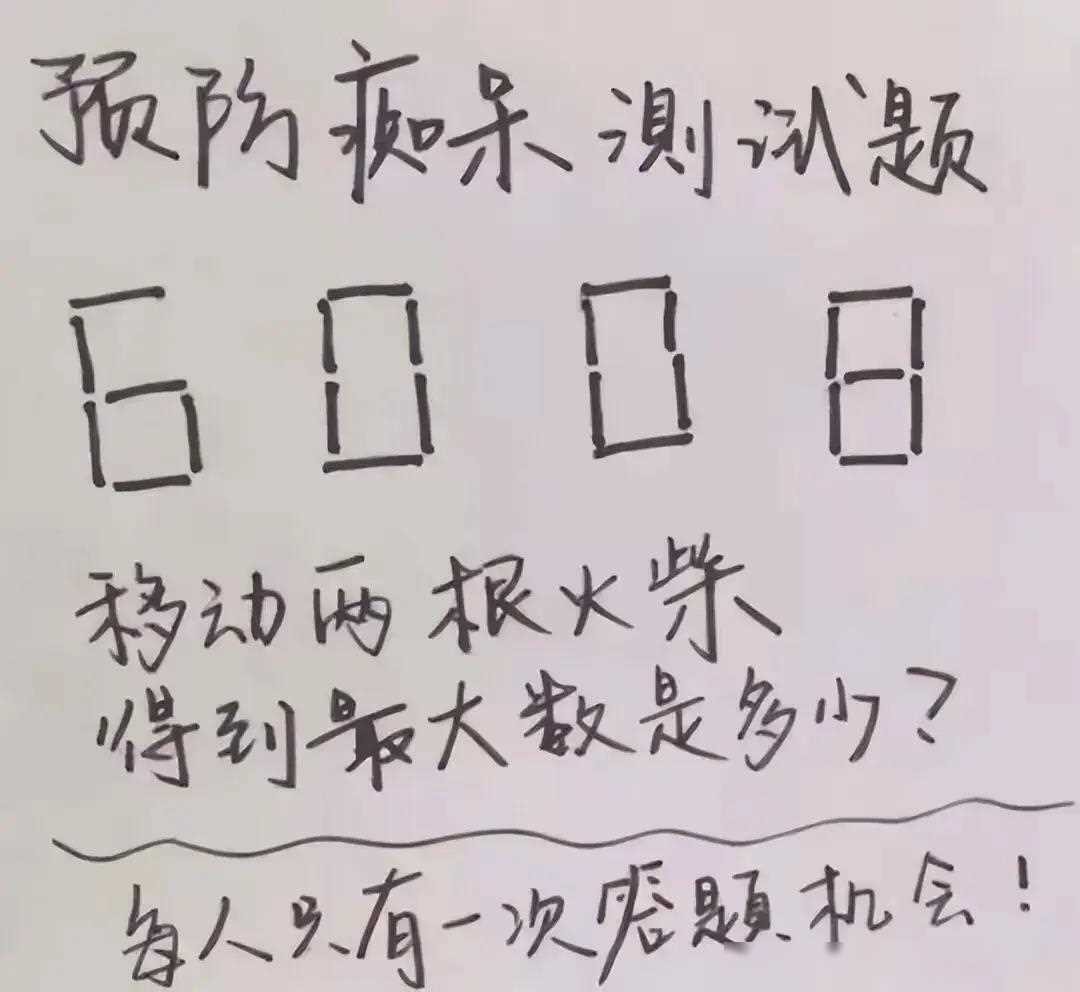 预防痴呆测试题
6008
移动两根火柴
得到最大数是多少?
每人只有一次答题机会!